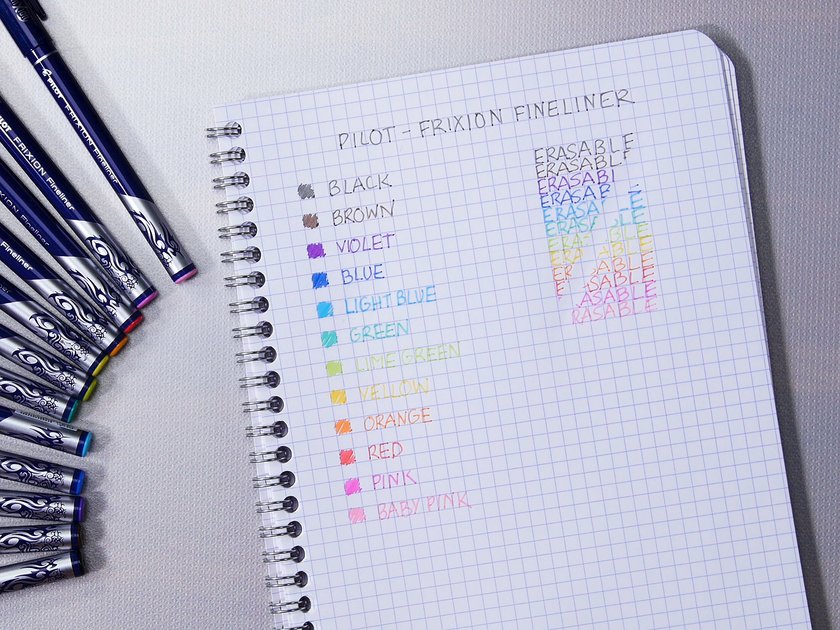 PILOT FRIXION Fineliner
PILOT FRIXION Fineliner
FRIXION Fineliner
Fineliner
PILOT - FRIXION FINELINER
BLACK
BROWN
VIOLET
BLUE
LIGHT BLUE
GREEN
LIME GREEN
YELLOW
ORANGE
RED
PINK
BABY PINK
ERASABLE
ERASABL
ERASABL
ERASAB
ERASA E
ERASA LE
ERA BLE
ERA ABLE
ER ABLE
E ASABLE
ASABLE
RASABLE